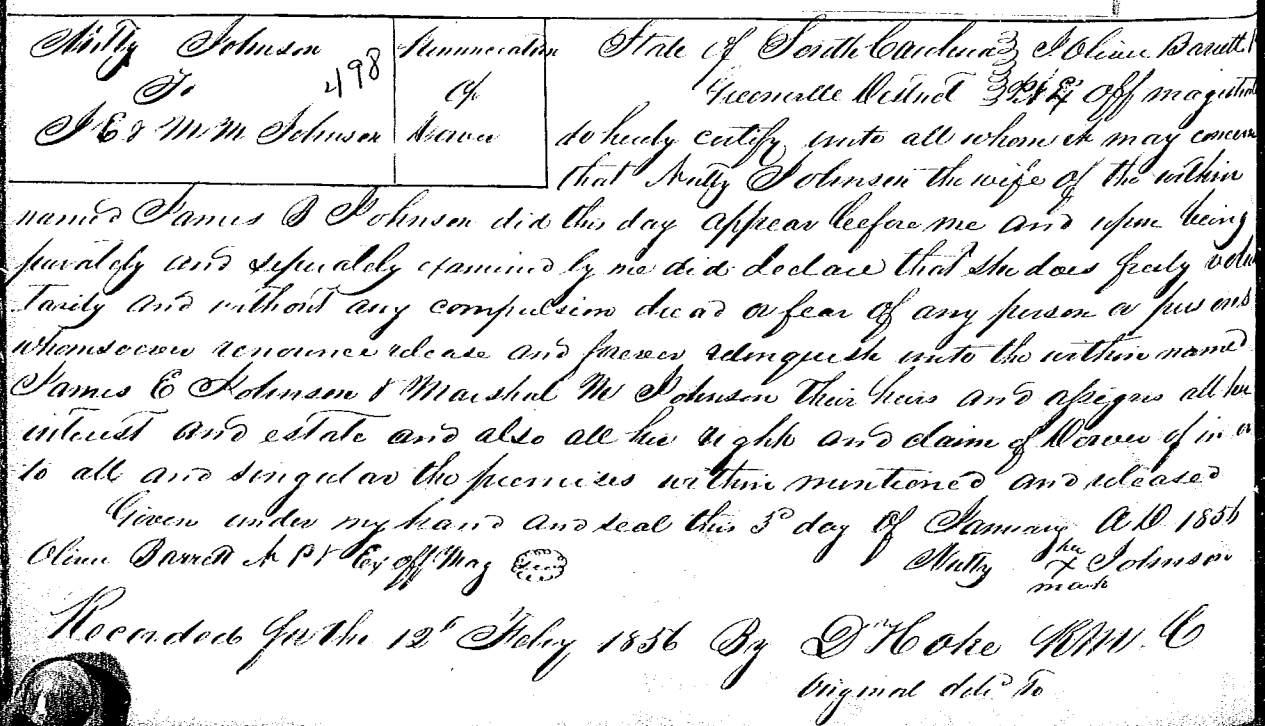 Nutty Johnson
To
J E & M M Johnson
498
Renunciation
of
Dower
State of South Carolina I Oliver Barrett N
Greenville District P & Ex Off magistrate
do hereby certify unto all whom it may concern
that Nutty Johnson the wife of the within
named James B Johnson did this day appear before me and upon being
privately and seperately examined by me did declare that she does freely volun
tarily and without any compulsion dread or fear of any person or persons
whomsoever renounce release and forever relinquish unto the within named
James E Johnson & Marshal M Johnson their heirs and assigns all her
interest and estate and also all her right and claim of Dower of in or
to all and singular the premises within mentioned and released
Given under my hand and seal this 3d day of January A D 1856
Oliver Barrett N P & Ex off Mag Seal
Nutty her X mark Johnson
Recorded for the 12th Feby 1856 By D Hoke R M C
Original deld To